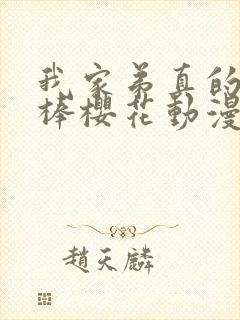 我家弟真的
棒櫻花動漫
趙天麟